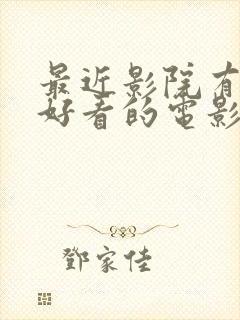 最近影院有
好看的電影
鄧家佳